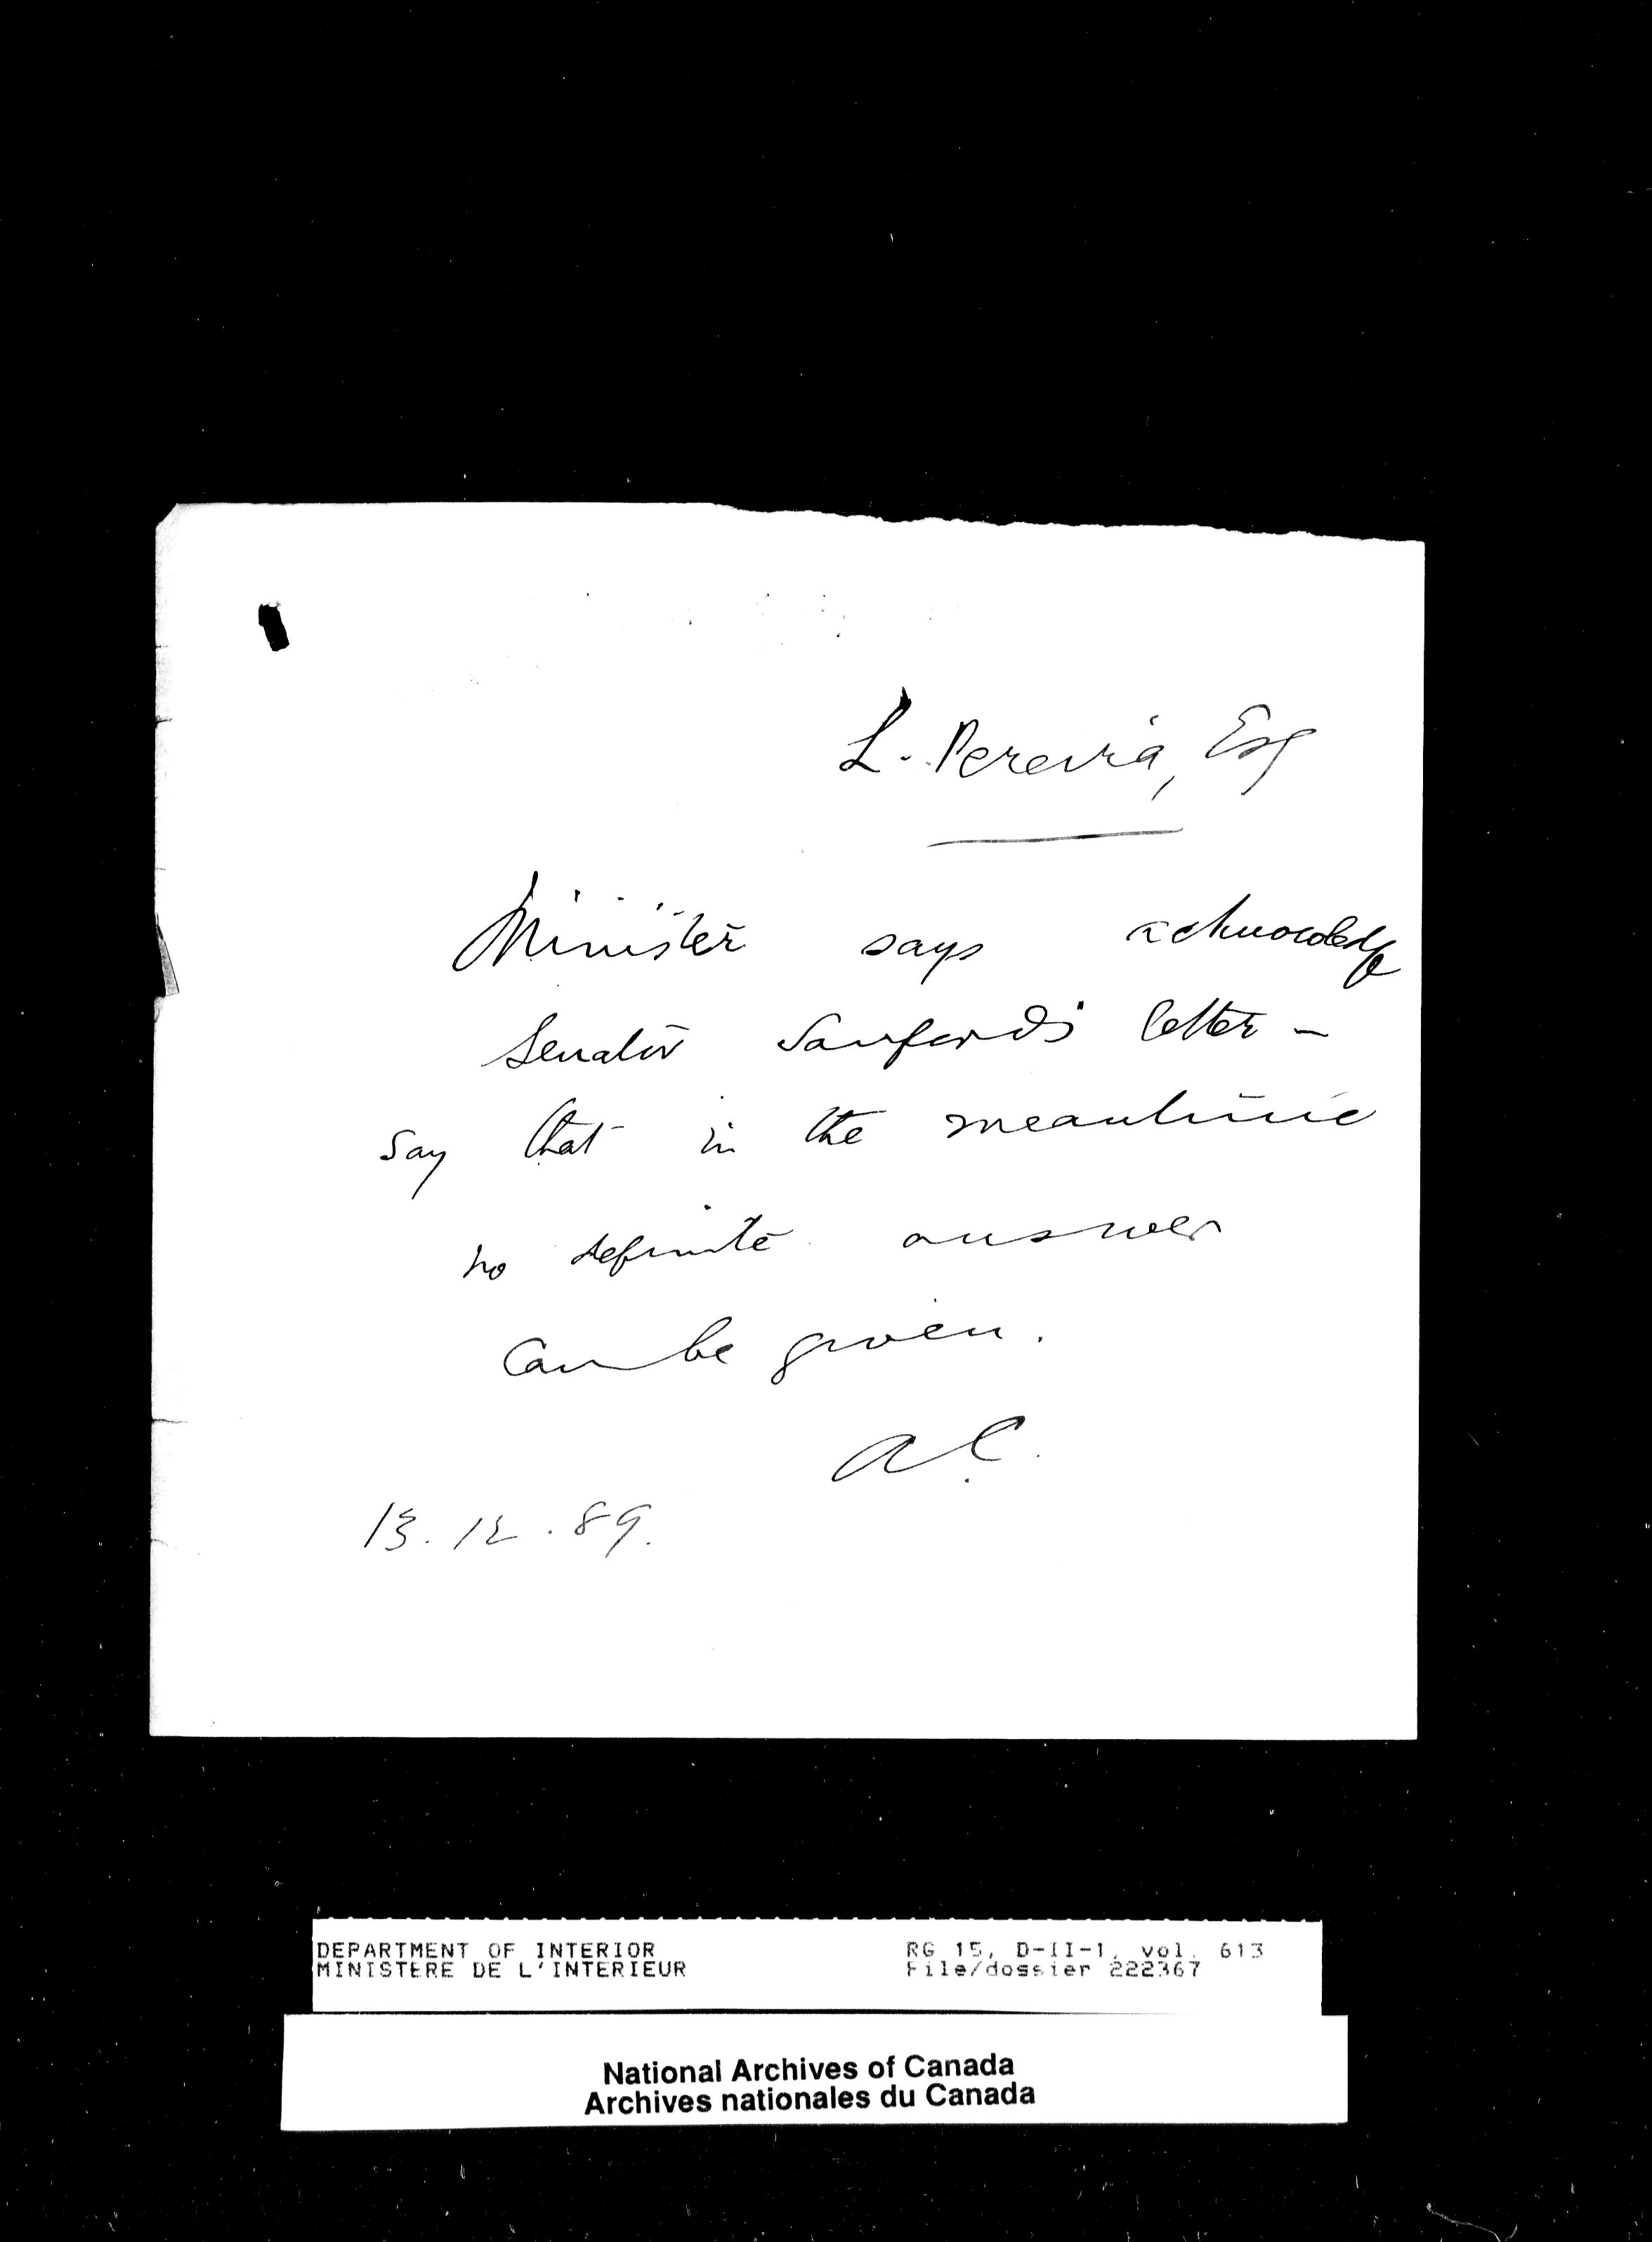 L. Pereira, Esq
Minister says acknowledge
Senator Sanford's letter –
say that in the meantime
no definite answer
can be given.
A.C.
13.12.89.
DEPARTMENT OF INTERIOR RG 15, D-II-1, vol. 613
MINISTERE DE L'INTERIEUR File/dossier 222367
National Archives of Canada
Archives nationales du Canada